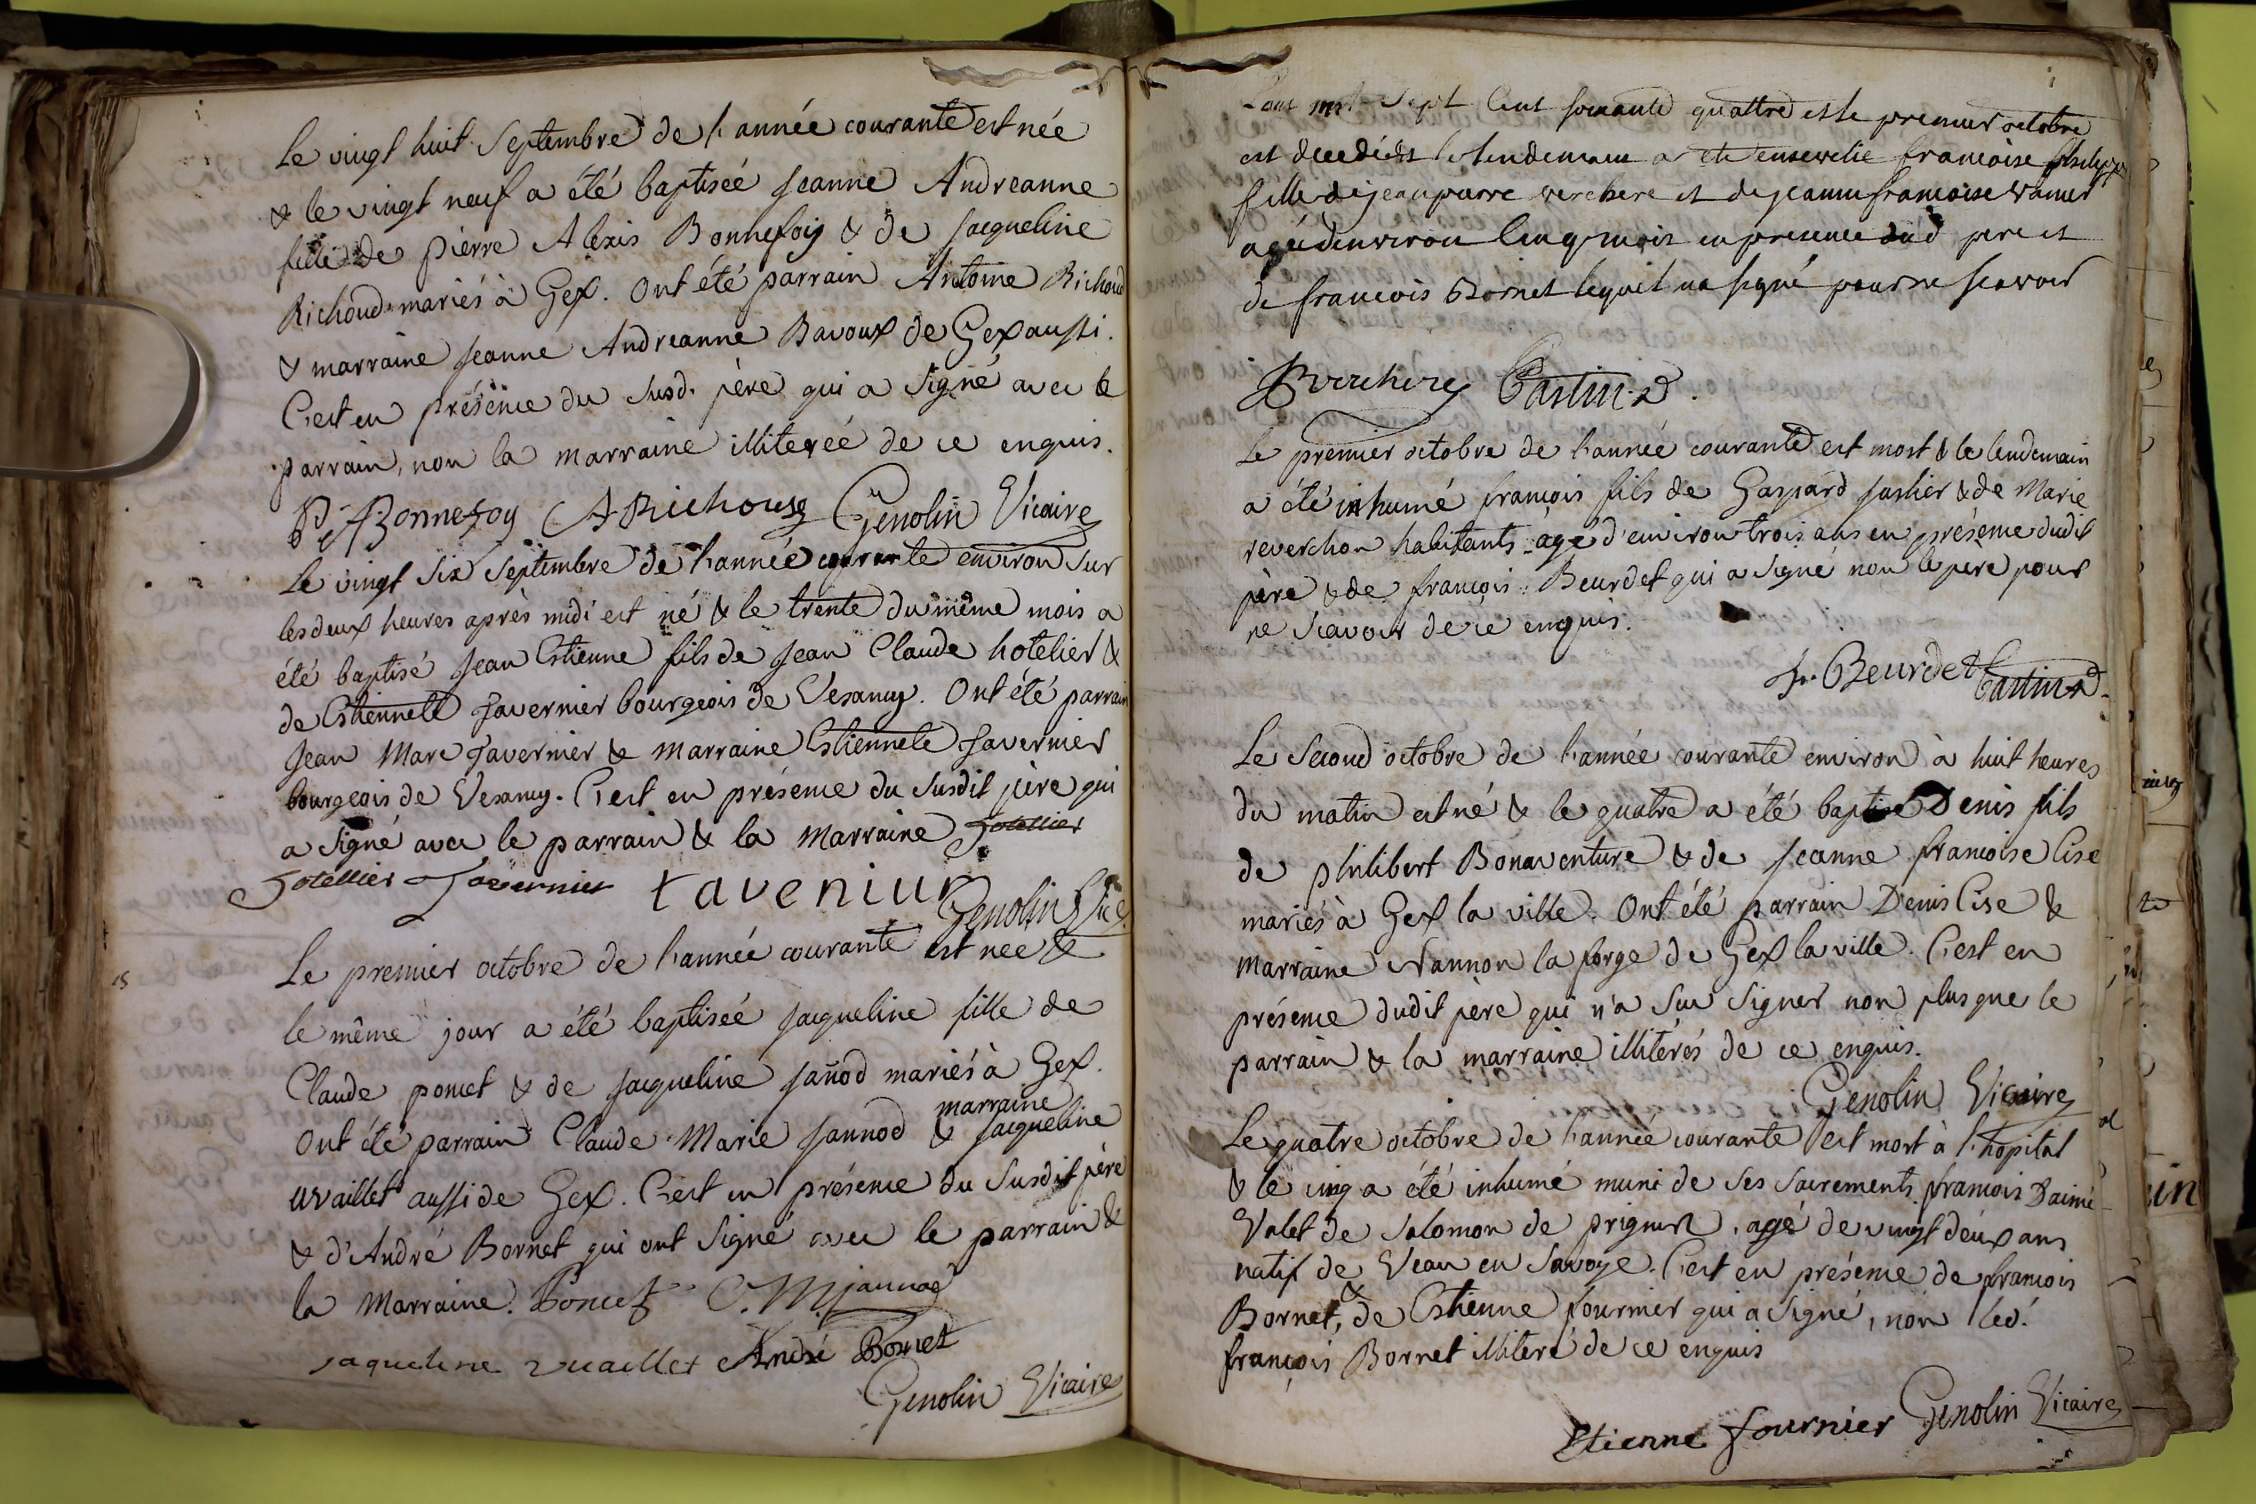 Le vingt huit Septembre de l'année courante est née
& le vingt neuf a été baptisée Jeanne Andreanne
fille de pierre Alexis Bonnefoy & de Jacqueline
Richoud mariés à Gex. Ont été parrain Antoine Richoud
& marraine Jeanne Andreanne Bavoux de Gex aussi.
C'est en présence du susd. père qui a Signé avec le
parrain, non la marraine illiterée de ce enquis.
P. A. Bonnefoy A Richoud Genolin Vicaire
Le vingt Six Septembre de l'année courante environ sur
les deux heures après midi est né & le trente du même mois a
été baptisé Jean Estienne fils de Jean Claude hotelier &
de Estiennete Tavernier bourgeois de Vesancy. Ont été parrain
Jean Marc Tavernier & marraine Estiennete Tavernier
bourgeois de Vesancy. C'est en présence du Susdit père qui
a Signé avec le parrain & la marraine Hotellier
Hotellier Tavernier taveniur
Genolin Vic.
Le premier octobre de l'année courante est née &
le même jour a été baptisée Jacqueline fille de
Claude poncet & de Jacqueline Jañod mariés à Gex.
marraine
Ont été parrain Claude Marie Jannod & Jacqueline
uvaillet aussi de Gex. C'est en présence du Susdit père
& d'André Bornet qui ont Signé avec le parrain &
la Marraine. Poncet C. M. jannod
Jaqueline vuaillet André Bornet
Genolin Vicaire
Lant mil Sept Cent soixante quattre et le premier octobre
est decedée et le lendemain a eté ensevelie francoise
fille de jean pierre verchere et de jeanne francoise
agée denviron Cinq mois en presence dud pere et
de francois Bornet lequel na signé pour ne scavoir
Verchere Castin.
Le premier octobre de l'année courante est mort & le lendemain
a été inhumé françois fils de Gaspard & de Marie
reverchon habitants agé d'environ trois ans en présence dudit
père & de françois Beurdet qui a Signé non le père pour
ne Scavoir de ce enquis.
fr. Beurdet Castin
Le Second octobre de l'année courante environ à huit heures
du matin est né & le quatre a été baptisé Denis fils
de philibert Bonaventure & de Jeanne francoise Cise
mariés à Gex la ville. Ont été parrain Denis Cise &
marraine Nannon la forge de Gex la ville. C'est en
présence dudit père qui n'a Su Signer non plus que le
parrain & la marraine illitérés de ce enquis.
Genolin Vicaire
Le quatre octobre de l'année courante est mort à l'hopital
& le cinq a été inhumé muni de ses sacrements francois Daimé
Valet de Salomon de prignin, agé de vingt deux ans
natif de Veau en Savoye. C'est en présence de francois
Bornet, & de Estienne fournier qui a Signé, non led.
françois Bornet illiteré de ce enquis
Etienne fournier Genolin Vicaire